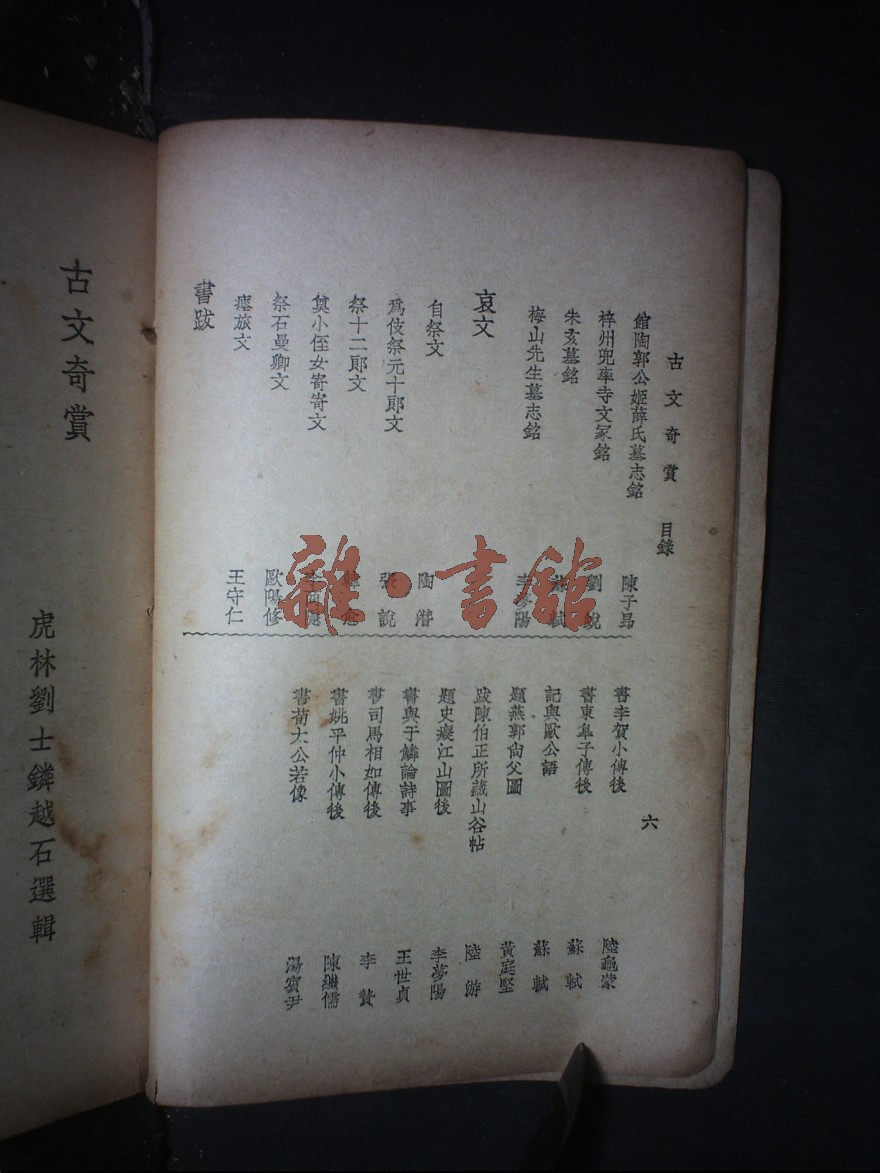 古文奇賞 目錄 六
館陶郭公姬薛氏墓志銘 陳子昂
梓州兜率寺文冢銘 劉蛻
朱亥墓銘 蘇軾
梅山先生墓志銘 李夢陽
哀文
自祭文 陶潛
爲伎祭元十郎文 張說
祭十二郎文 韓愈
奠小侄女寄寄文 李商隱
祭石曼卿文 歐陽修
瘞旅文 王守仁
書跋
書李賀小傳後 陸龜蒙
書東皐子傳後 蘇軾
記與歐公語 蘇軾
題燕郭尙父圖 黃庭堅
跋陳伯正所藏山谷帖 陸游
題史癡江山圖後 李夢陽
書與于鱗論詩事 王世貞
書司馬相如傳後 李贄
書姚平仲小傳後 陳繼儒
書荀大公若像 湯賓尹
古文奇賞
虎林劉士鏻越石選輯
雜·書館